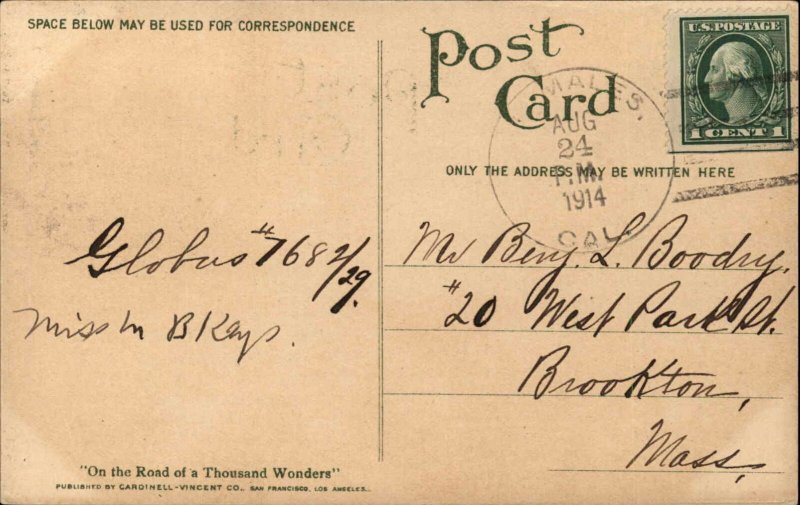 SPACE BELOW MAY BE USED FOR CORRESPONDENCE
Post
Card
U.S. POSTAGE
1 CENT 1
MALES,
AUG
24
P.M.
1914
CAL.
ONLY THE ADDRESS MAY BE WRITTEN HERE
Globus #7682/29.
Miss M B Keys.
Mr Benj. L. Boodry.
#20 West Park St.
Brookton,
Mass,
"On the Road of a Thousand Wonders"
PUBLISHED BY CARDINELL-VINCENT CO., SAN FRANCISCO, LOS ANGELES.